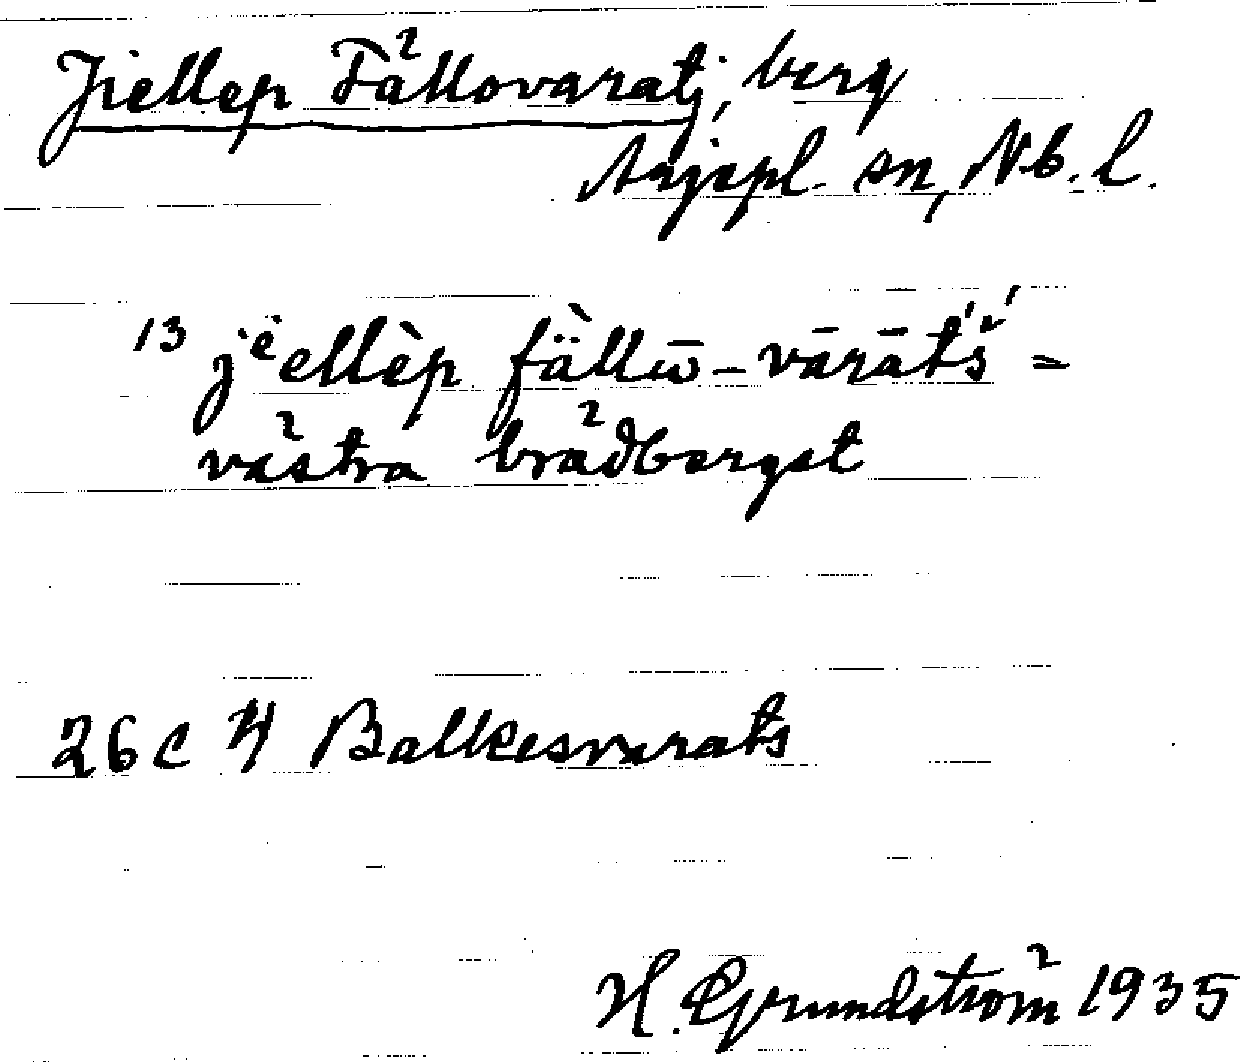 Jiellep Fällovaratj, berg
Arjepl. sn, Nb. l.
13 jᵉellèp fä̀llω̄-vārāt́š́ =
västra brådberget
26 C 4 Balkesvarats
H. Grundström 1935